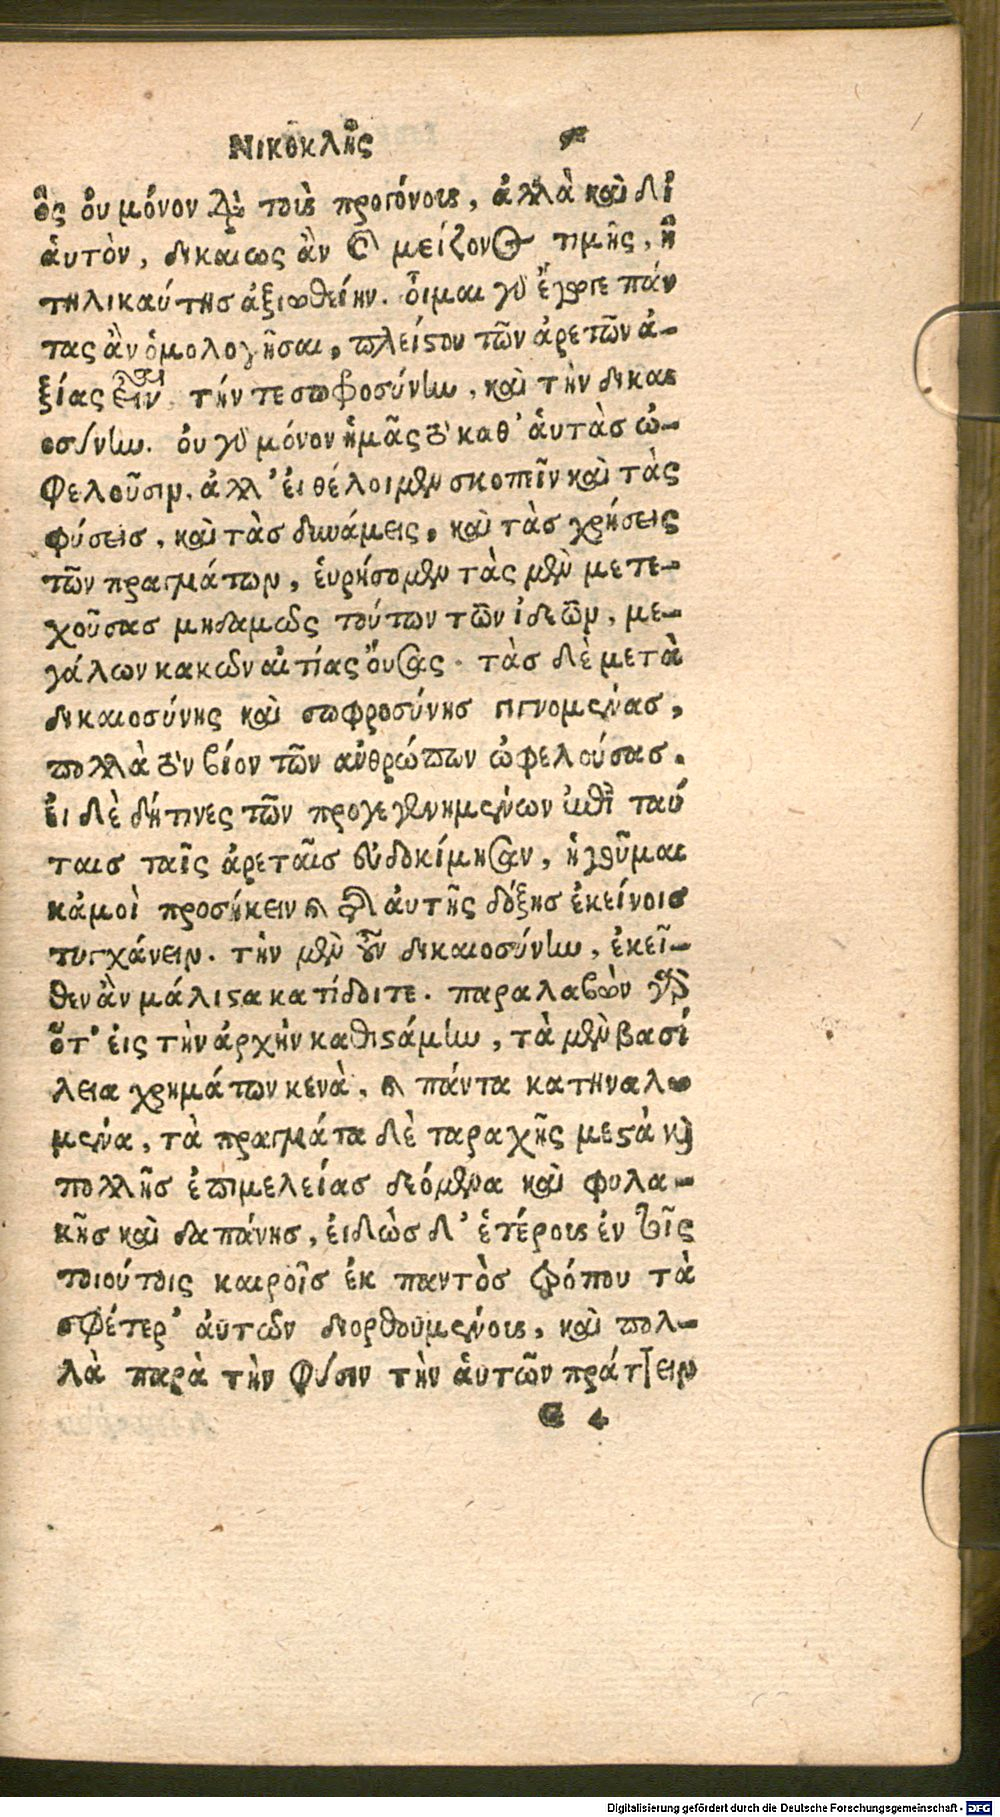 Νικοκλῆς
ὃς ὀυ μόνον διὰ τοὺς προγόνους, ἀλλὰ καὶ δι
ἀυτὸν, δικαίως ἂν καὶ μείζονος τιμῆς, ἢ
τηλικαύτησ ἀξιωθείην. ὄιμαι γὸ ἔγωγε πάν
τας ἂν ὁμολογῆσαι, πλείστου τῶν ἀρετῶν ἀ-
ξίας εἶναι τήν τε σωφροσύνην, καὶ τὴν δικαι
οσύνην. ὀυ γὸ μόνον ἡμᾶς τὸ καθ' ἁυτὰσ ὠ-
φελοῦσιν. ἀλλ' ἐι θέλοιμεν σκοπεῖν καὶ τὰς
φύσεισ, καὶ τὰσ δυνάμεις, καὶ τὰσ χρήσεις
τῶν πραγμάτων, ἑυρήσομεν τὰς μὲν μετε-
χοῦσασ μηδαμῶς τούτων τῶν ἰδεῶν, με-
γάλων κακῶν αἰτίας ὄυσας. τὰσ δὲ μετὰ
δικαιοσύνης καὶ σωφροσύνησ γιγνομένασ,
πολλὰ τὸν βίον τῶν ἀνθρώπων ὠφελούσασ.
ἐι δὲ δή τινες τῶν προγεγενημένων ἐπὶ ταύ
ταισ ταῖς ἀρεταῖσ εὐδοκίμησαν, ἡγοῦμαι
κἀμοὶ προσήκειν τῆς ἀυτῆς δόξησ ἐκείνοισ
τυγχάνειν. τὴν μὲν οὖν δικαιοσύνην, ἐκεῖ-
θεν ἂν μάλιστα κατίδοιτε. παραλαβὼν γὰρ
ὅτ' ἐις τὴν ἀρχὴν καθιστάμην, τὰ μὲν βασί
λεια χρημάτων κενὰ, καὶ πάντα κατηναλω
μένα, τὰ πραγμάτα δὲ ταραχῆς μεστὰ καὶ
πολλῆσ ἐπιμελείασ δεόμενα καὶ φυλα-
κῆσ καὶ δαπάνησ, ἐιδὼσ δ' ἑτέρους ἐν τοῖς
τοιούτοις καιροῖσ ἐκ παντὸσ τρόπου τὰ
σφέτερ' ἀυτῶν διορθουμένους, καὶ πολ-
λὰ παρὰ τὴν φύσιν τὴν ἁυτῶν πράττειν
G 4
Digitalisierung gefördert durch die Deutsche Forschungsgemeinschaft - DFG